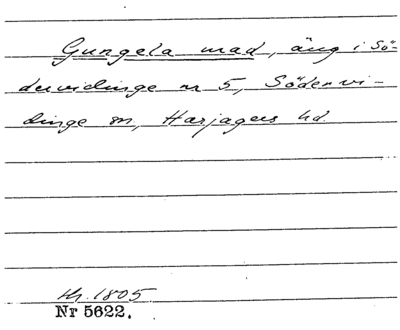 Gungela mad, äng i Sö-
dervidinge nr 5, Södervi-
dinge sn, Harjagers hd.
Kr. 1805.
Nr 5622.